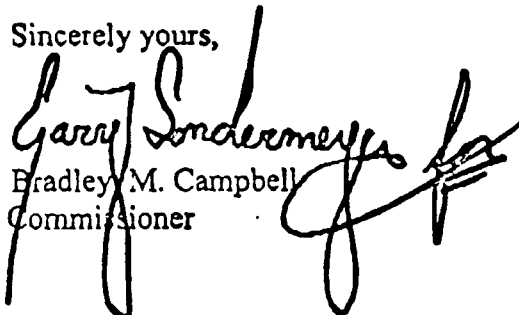 Sincerely yours,
Gary Sondermeyer for
Bradley M. Campbell
Commissioner